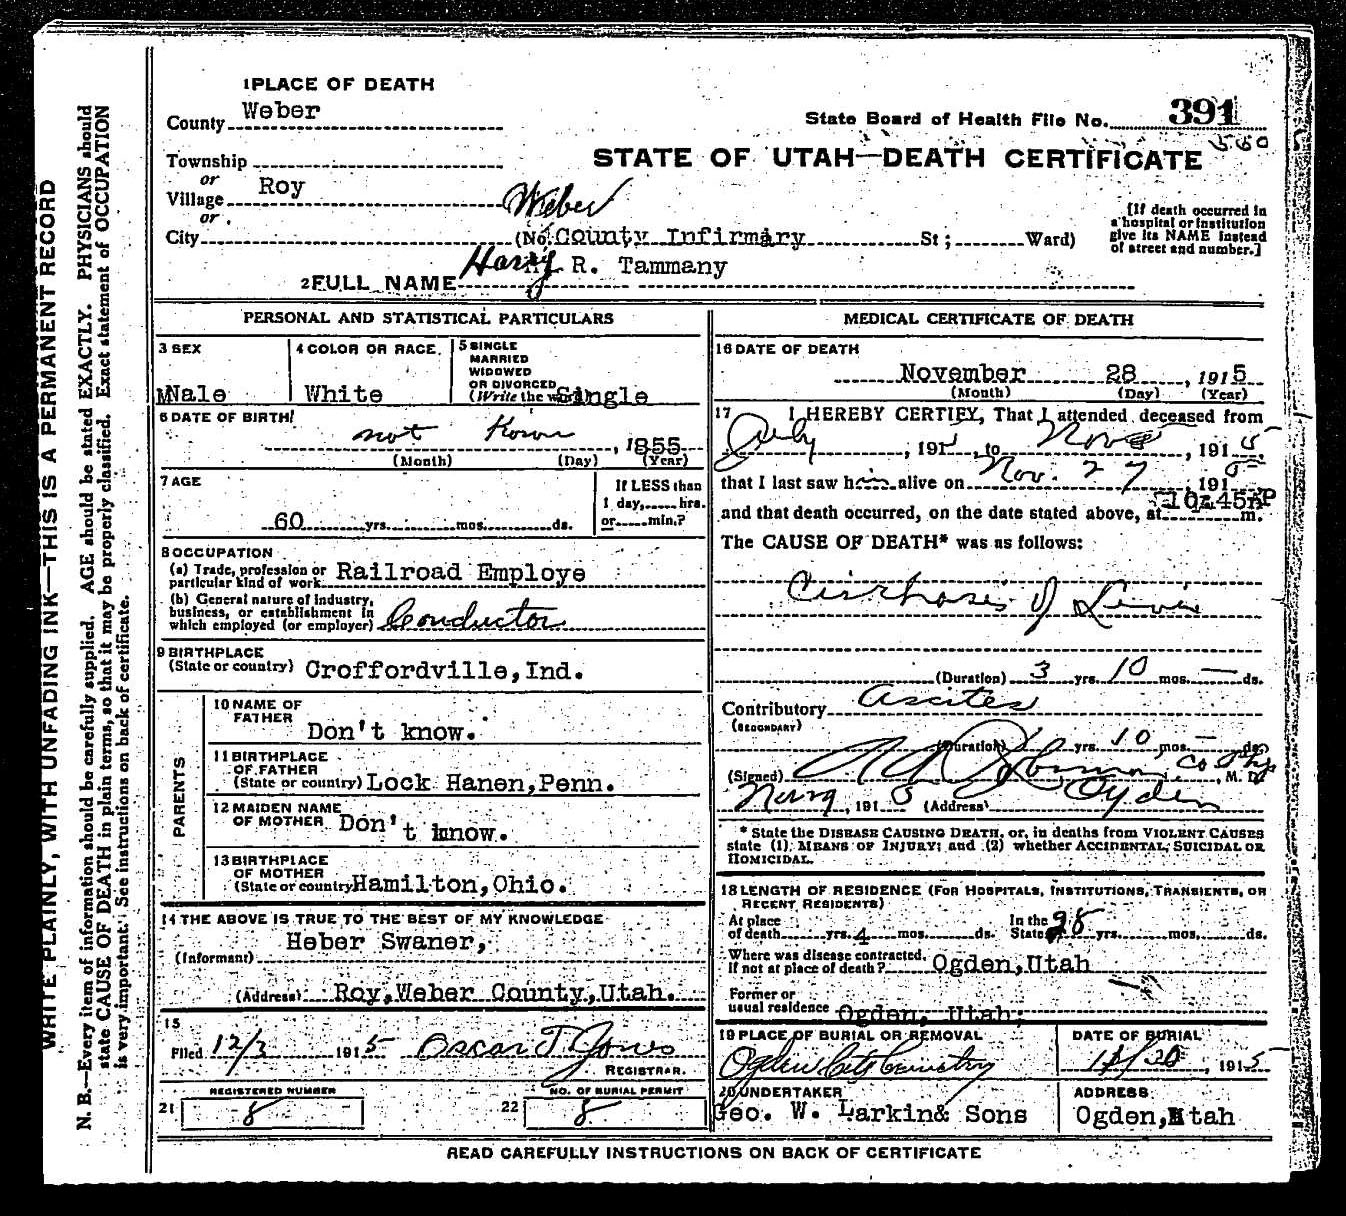 1 PLACE OF DEATH
County Weber
State Board of Health File No. 391
560
Township
STATE OF UTAH—DEATH CERTIFICATE
or
Village Roy
or
Weber
City (No. County Infirmary St; Ward)
[If death occurred in
a hospital or institution
give its NAME instead
of street and number.]
2 FULL NAME Harry R. Tammany
PERSONAL AND STATISTICAL PARTICULARS
3 SEX
Male
4 COLOR OR RACE
White
5 SINGLE
MARRIED
WIDOWED
OR DIVORCED
(Write the word) Single
6 DATE OF BIRTH
not Known, 1855
(Month) (Day) (Year)
7 AGE
60 yrs. mos. ds.
If LESS than
1 day, hrs.
or min.?
8 OCCUPATION
(a) Trade, profession or
particular kind of work Railroad Employe
(b) General nature of industry,
business, or establishment in
which employed (or employer) Conductor
9 BIRTHPLACE
(State or country) Croffordville, Ind.
PARENTS
10 NAME OF
FATHER
Don't know.
11 BIRTHPLACE
OF FATHER
(State or country) Lock Hanen, Penn.
12 MAIDEN NAME
OF MOTHER Don't know.
13 BIRTHPLACE
OF MOTHER
(State or country Hamilton, Ohio.
14 THE ABOVE IS TRUE TO THE BEST OF MY KNOWLEDGE
Heber Swaner,
(Informant)
(Address) Roy, Weber County, Utah.
15
Filed 12/3 1915 Oscar T Jones
REGISTRAR.
REGISTERED NUMBER
21 8
NO. OF BURIAL PERMIT
22 8
MEDICAL CERTIFICATE OF DEATH
16 DATE OF DEATH
November 28, 1915
(Month) (Day) (Year)
17 I HEREBY CERTIFY, That I attended deceased from
July, 1915, to Nov, 1915,
that I last saw him alive on Nov. 27, 1915
and that death occurred, on the date stated above, at 10:45 P m.
The CAUSE OF DEATH* was as follows:
Cirrhosis of Liver
(Duration) 3 yrs. 10 mos. — ds.
Contributory Ascites
(SECONDARY)
(Duration) yrs. 10 mos. — ds.
(Signed) Co Phy, M. D.
Nov 29, 1915 (Address) Ogden
* State the DISEASE CAUSING DEATH, or, in deaths from VIOLENT CAUSES
state (1) MEANS OF INJURY; and (2) whether ACCIDENTAL, SUICIDAL OR
HOMICIDAL.
18 LENGTH OF RESIDENCE (FOR HOSPITALS, INSTITUTIONS, TRANSIENTS, OR
RECENT RESIDENTS)
At place
of death yrs. 4 mos. ds.
In the
State 28 yrs. mos. ds.
Where was disease contracted,
If not at place of death? Ogden, Utah
Former or
usual residence Ogden, Utah.
19 PLACE OF BURIAL OR REMOVAL
Ogden City Cemetry
DATE OF BURIAL
, 1915
20 UNDERTAKER
Geo. W. Larkin & Sons
ADDRESS
Ogden, Utah
READ CAREFULLY INSTRUCTIONS ON BACK OF CERTIFICATE
WRITE PLAINLY, WITH UNFADING INK—THIS IS A PERMANENT RECORD
N. B.—Every item of information should be carefully supplied. AGE should be stated EXACTLY. PHYSICIANS should
state CAUSE OF DEATH in plain terms, so that it may be properly classified. Exact statement of OCCUPATION
is very important. See instructions on back of certificate.